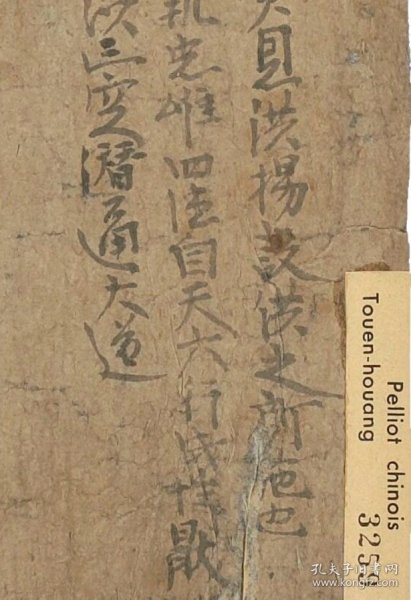 恩洪揚設供之所施也
忠雄四德自天六行成性
三寳潛通大道
Pelliot chinois
Touen-houang 325
孔夫子旧书网
www.kongfz.com